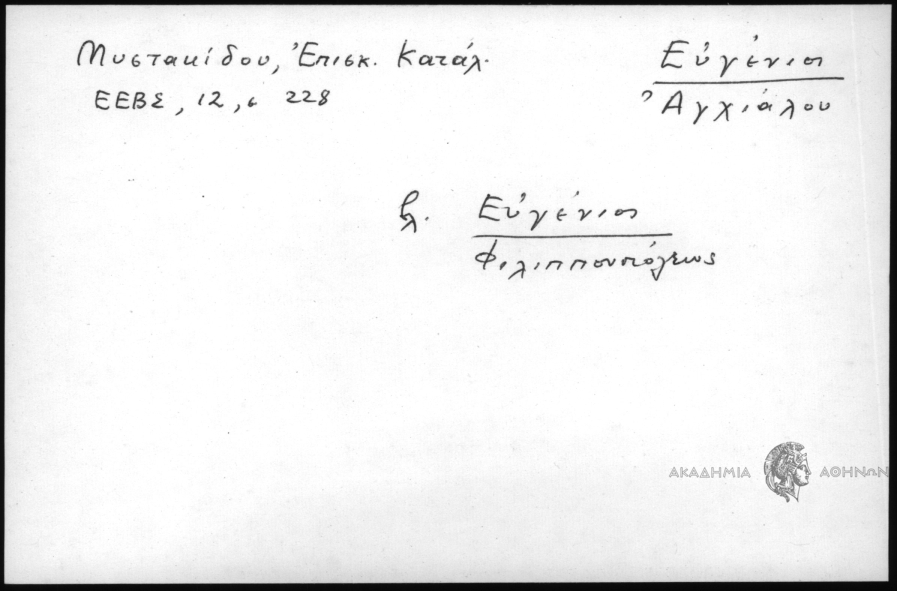 Μυστακίδου, Ἐπισκ. Κατάλ.
ΕΕΒΣ, 12, σ 228
Εὐγένιος
Ἀγχιάλου
βλ. Εὐγένιος
Φιλιππουπόλεως
ΑΚΑΔΗΜΙΑ ΑΘΗΝΩΝ